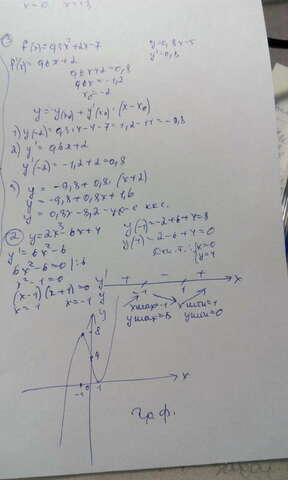 x=0 x=1,3
① f(x)=0,3x²+2x-7 y=0,8x-5
f'(x)=0,6x+2 y'=0,8
0,6x+2=0,8
0,6x=-1,2
x₀=-2
y=y(x₀)+y'(x₀)·(x-x₀)
1) y(-2)=0,3·4-4-7=1,2-11=-9,8
2) y'=0,6x+2
y'(-2)=-1,2+2=0,8
3) y=-9,8+0,8·(x+2)
y=-9,8+0,8x+1,6
y=0,8x-8,2 - ур-е кас.
② y=2x³-6x+4 y(-1)=-2+6+4=8
y'=6x²-6 y(1)=2-6+4=0
6x²-6=0 |:6 Доп. т.: x=0
x²-1=0 y=4
(x-1)(x+1)=0 y' + - + x
x=1 x=-1 y -1 1
xmax=-1 xmin=1
ymax=8 ymin=0
y
8
4
-1 0 1 x
граф.